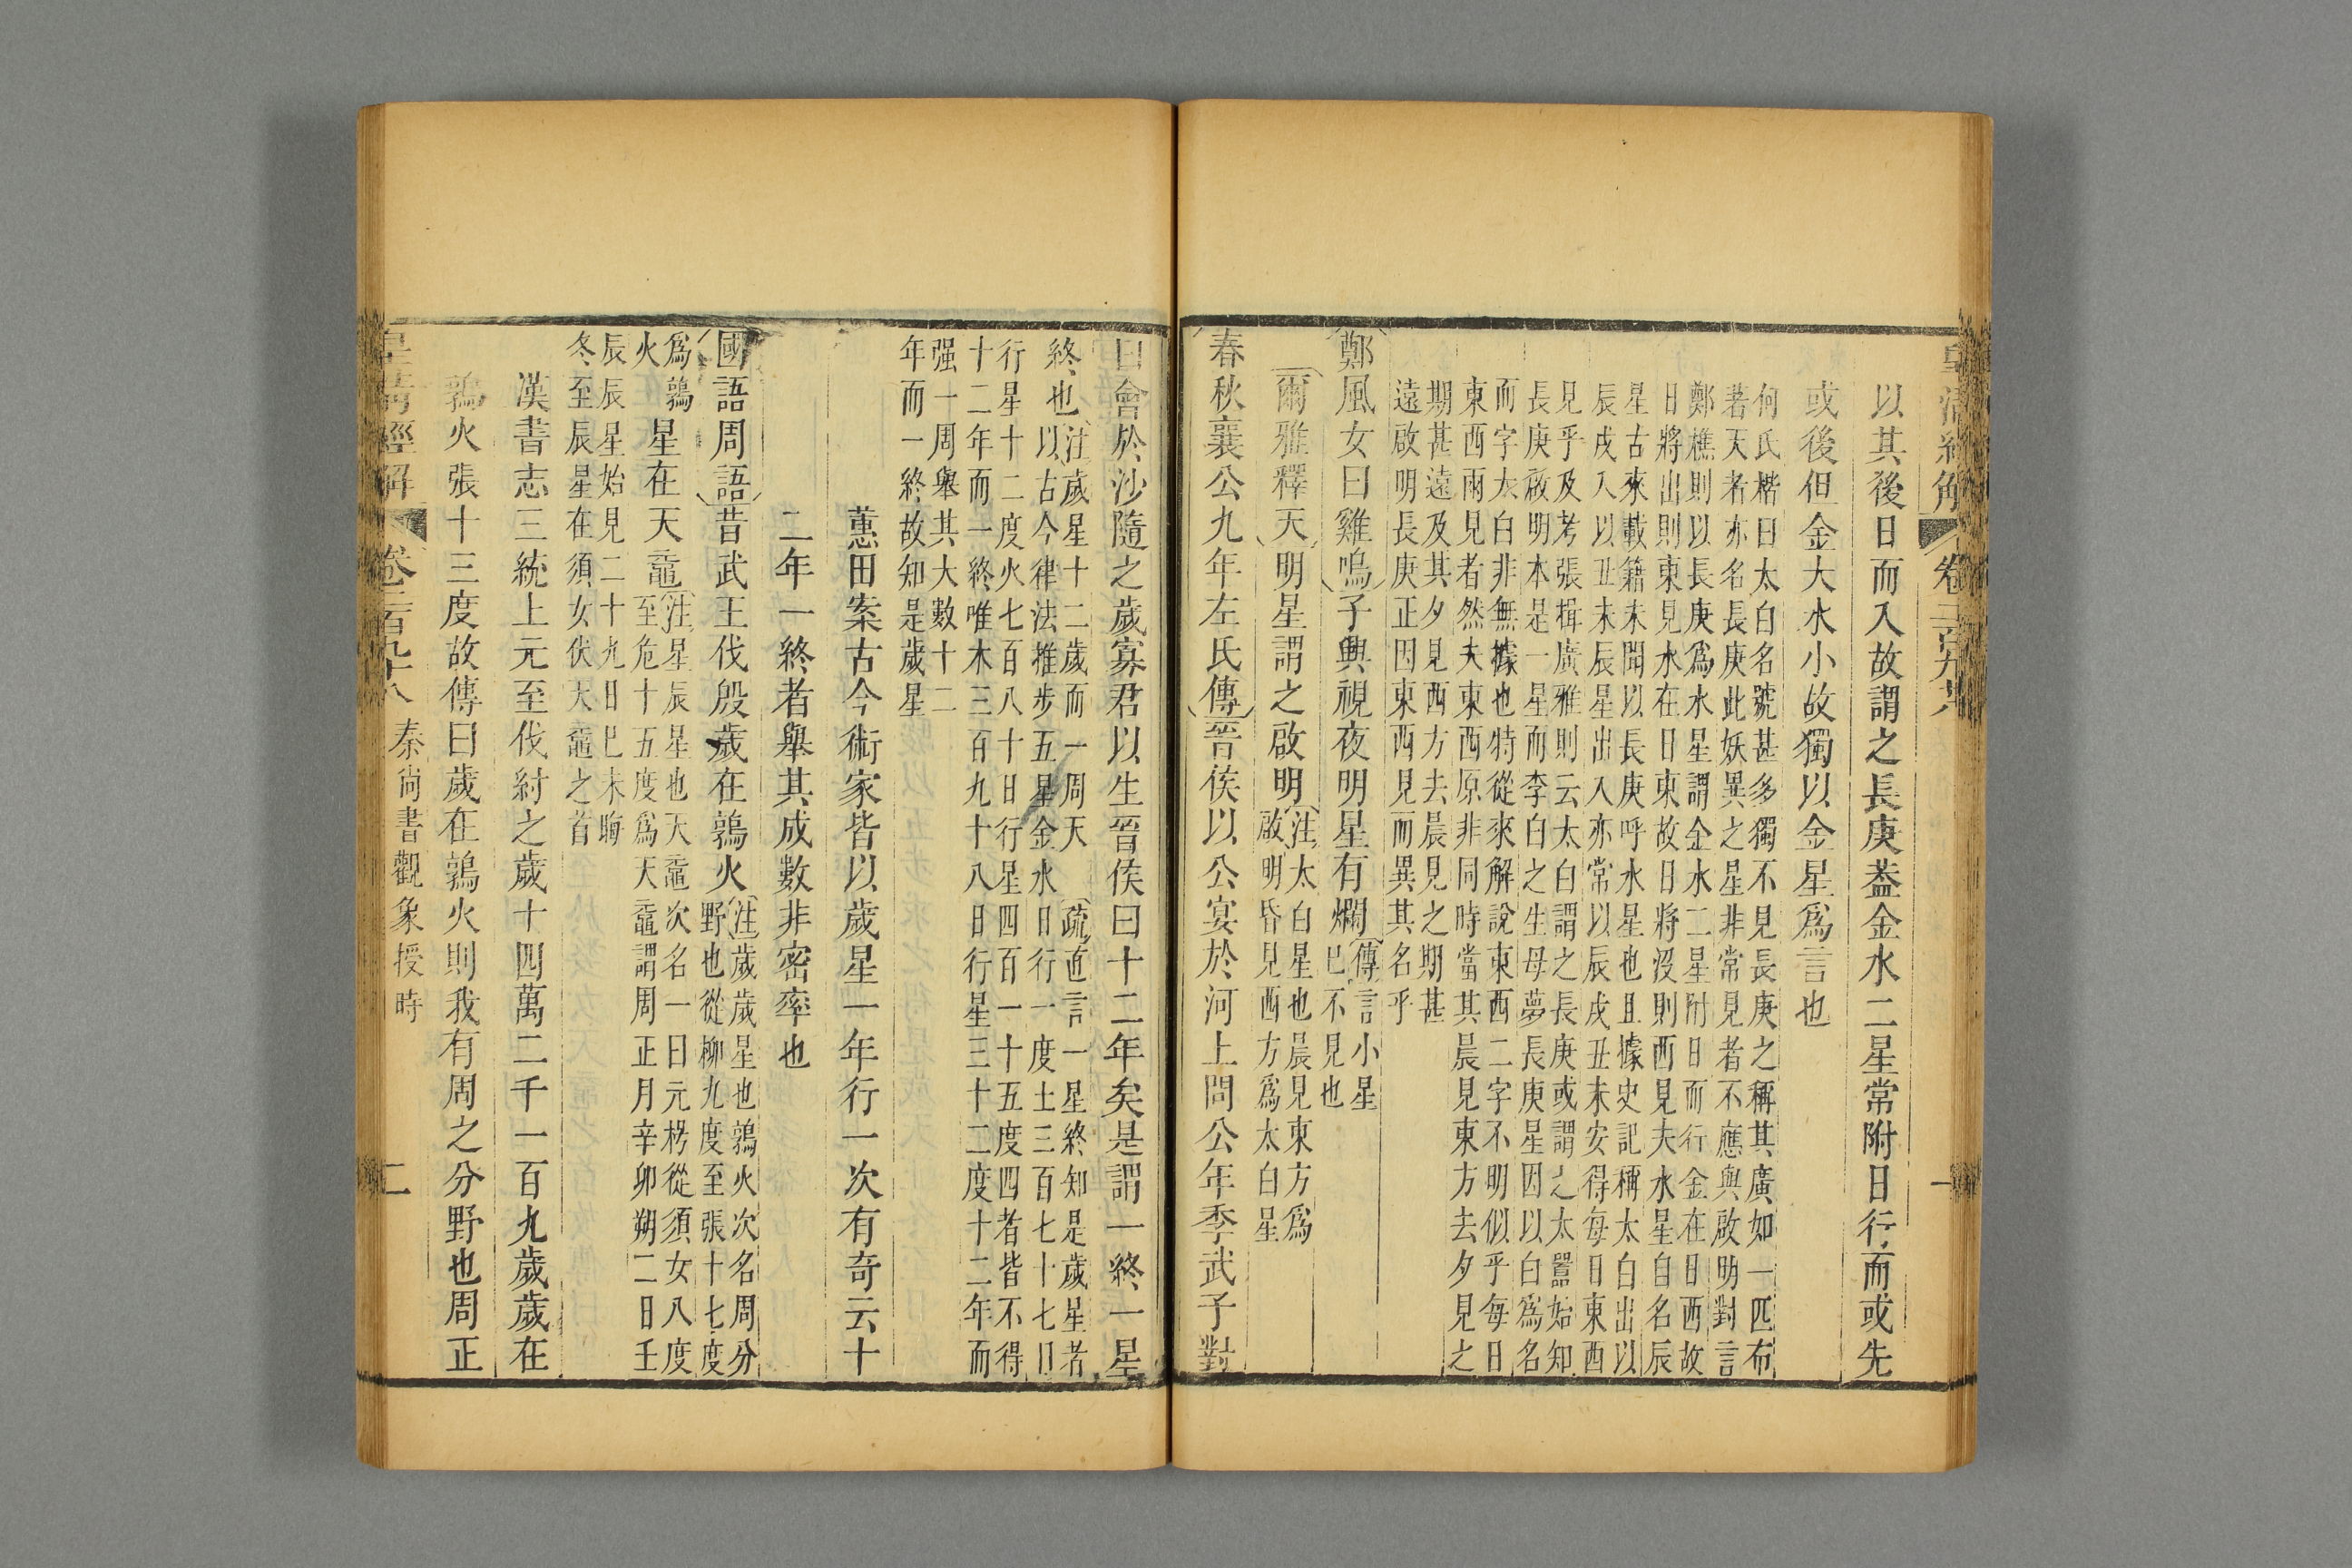 皇清經解 卷二百九十八 一
以其後日而入故謂之長庚葢金水二星常附日行而或先
或後但金大水小故獨以金星爲言也
何氏楷曰太白名號甚多獨不見長庚之稱其廣如一匹布
著天者亦名長庚此妖異之星非常見者不應與啟明對言
鄭樵則以長庚爲水星謂金水二星附日而行金在日西故
日將出則東見水在日東故日將沒則西見夫水星自名辰
星古來載籍未聞以長庚呼水星也且據史記稱太白出以
辰戌入以丑未辰星出入亦常以辰戌丑未安得每日東西
見乎及考張揖廣雅則云太白謂之長庚或謂之太嚚始知
長庚啟明本是一星而李白之生母夢長庚星因以白爲名
而字太白非無據也特從來解說東西二字不明似乎每日
東西兩見者然夫東西原非同時當其晨見東方去夕見之
期甚遠及其夕見西方去晨見之期甚
遠啟明長庚正因東西見而異其名乎
鄭風女曰雞鳴子興視夜明星有爛傳言小星
已不見也
爾雅釋天明星謂之啟明注太白星也晨見東方爲
啟明昏見西方爲太白星
春秋襄公九年左氏傳晉侯以公宴於河上問公年季武子對
曰會於沙隨之歲寡君以生晉侯曰十二年矣是謂一終一星
終也注歲星十二歲而一周天疏直言一星終知是歲星者
以古今律法推步五星金水日行一度土三百七十七日
行星十二度火七百八十日行星四百一十五度四者皆不得
十二年而一終唯木三百九十八日行星三十二度十二年而
强一周舉其大數十二
年而一終故知是歲星
蕙田案古今術家皆以歲星一年行一次有奇云十
二年一終者舉其成數非密率也
國語周語昔武王伐殷歲在鶉火注歲歲星也鶉火次名周分
野也從柳九度至張十七度
爲鶉
火星在天黿注星辰星也天黿次名一曰元枵從須女八度
至危十五度爲天黿謂周正月辛卯朔二日壬
辰辰星始見二十九日已未晦
冬至辰星在須女伏天黿之首
漢書志三統上元至伐紂之歲十四萬二千一百九歲歲在
鶉火張十三度故傳曰歲在鶉火則我有周之分野也周正
皇清經解 卷二百九十八 秦尚書觀象授時 二